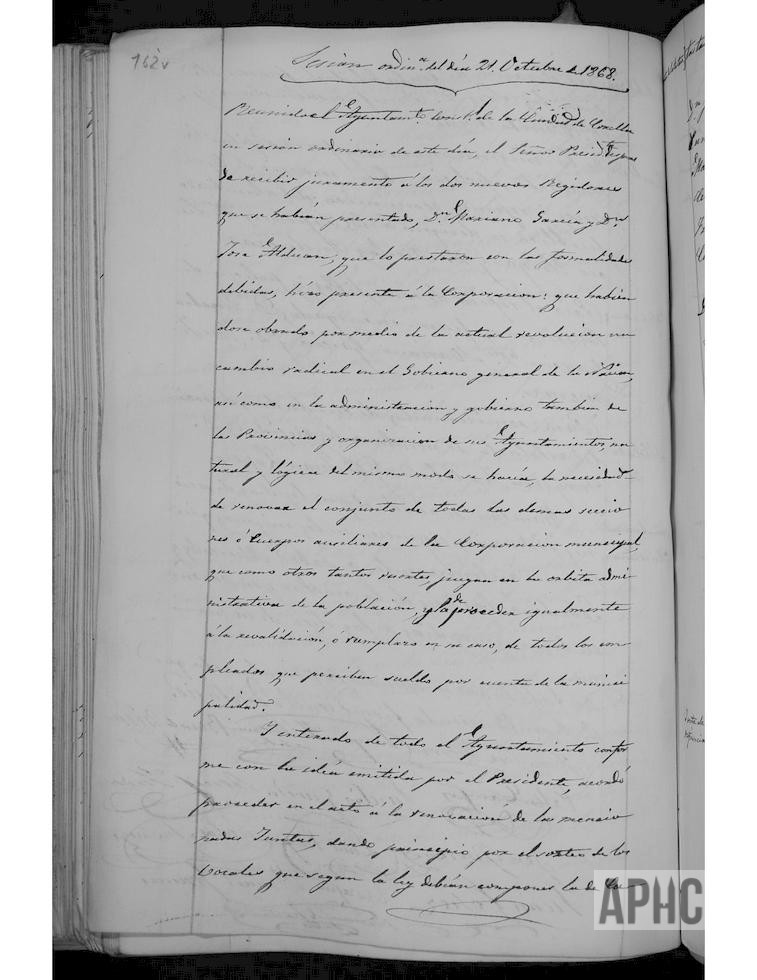 162v
Sesion ordin.ª del día 21. Octubre de 1868.
Reunido el Ayuntam.to de la Ciudad de Corella
en sesion ordinaria de este día, el Señor Presid.te despues
de recibir juramento á los dos nuevos Regidores
que se habían presentado, D.n Mariano García y D.n
Jose Alduan, que lo prestaron con las formalidades
debidas, hizo presente á la Corporacion: que habien
dose obrado por medio de la actual revolucion un
cambio radical en el Gobierno general de la Nacion,
así como en la administracion y gobierno tambien de
las Provincias y organizacion de sus Ayuntamientos, na
tural y lógica del mismo modo se hacía, la necesidad
de renovar el conjunto de todas las demas seccio
nes ó Cuerpos auxiliares de la Corporacion municipal,
que como otros tantos resortes, juegan en la orbita admi-
nistrativa de la poblacion, y la de proceder igualmente
á la revalidación, ó remplazo en su caso, de todos los em
pleados que perciben sueldo por cuenta de la munici
palidad.
Y enterado de todo el Ayuntamiento confor
me con la idéa emitida por el Presidente, acordó
proceder en el acto á la renovacion de las mencio
nadas Juntas, dando principio por el sorteo de los
Vocales que segun la ley debían componer la de Ca-
APHC